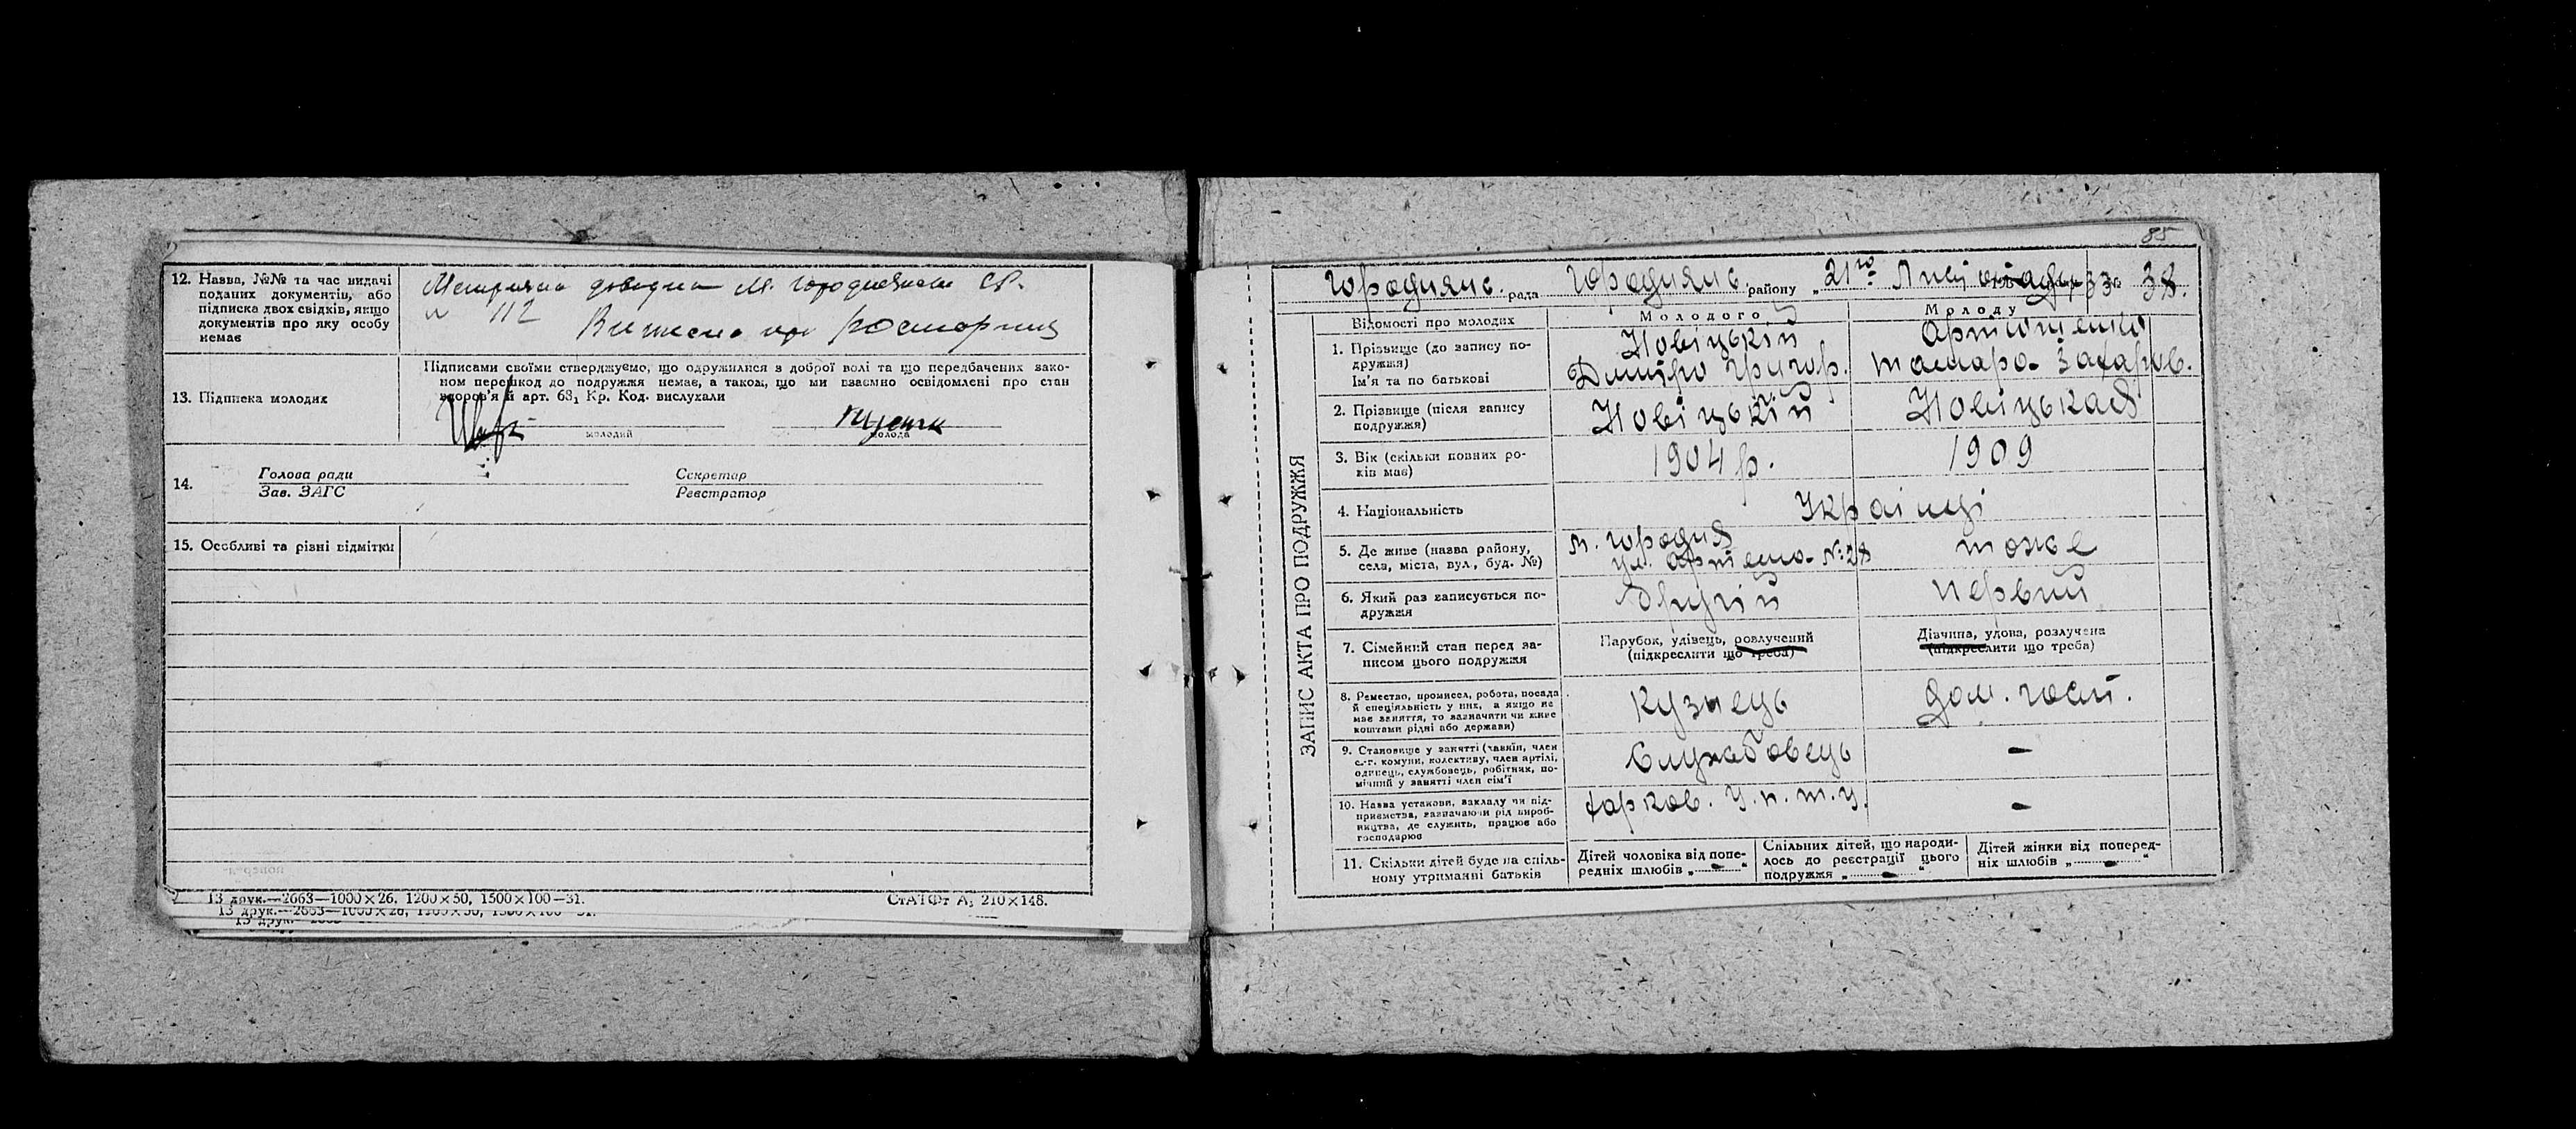 12. Назва, №№ та час видачі
поданих документів, або
підписка двох свідків, якщо
документів про яку особу
немає
Метрична довідка М. Городнянськ СР.
112
13. Підписка молодих
Підписами своїми стверджуємо, що одружилися з доброї волі та що передбачених зако-
ном перешкод до подружжя немає, а також, що ми взаємно освідомлені про стан
здоров'я й арт. 63₁ Кр. Код. вислухали
молодий
молода
14.
Голова ради
Зав. ЗАГС
Секретар
Реєстратор
15. Особливі та різні відмітки
13 друк.—2663—1000×26, 1200×50, 1500×100—31.
СтАТФт А₅ 210×148.
13 друк.—2663—1000×26, 1200×50, 1500×100—31.
13 друк.—2663
85
Городнянс. рада Городнянс. району „21го Листопада 33 № 38.
ЗАПИС АКТА ПРО ПОДРУЖЖЯ
Відомості про молодих
Молодого
Молоду
1. Прізвище (до запису по-
дружжя)
Ім'я та по батькові
Новіцькій
Дмитро Григор.
Артюшенко
Тамара Захаров.
2. Прізвище (після запису
подружжя)
Новіцькій
Новіцькая
3. Вік (скільки повних ро-
ків має)
1904 р.
1909
4. Національність
Українці
5. Де живе (назва району,
села, міста, вул., буд. №)
м. Городня
ул. Артема №28
тоже
6. Який раз записується по-
дружжя
другій
первий
7. Сімейний стан перед за-
писом цього подружжя
Парубок, удівець, розлучений
(підкреслити що треба)
Дівчина, удова, розлучена
(підкреслити що треба)
8. Ремество, промисел, робота, посада
й спеціяльність у них, а якщо не
має заняття, то зазначити чи живе
коштами рідні або держави)
Кузнець
Дом. госп.
9. Становище у занятті (хазяїн, член
с.-г. комуни, колективу, член артілі,
одинець, службовець, робітник, по-
мічний у занятті член сім'ї
Службовець
—
10. Назва установи, закладу чи під-
приємства, зазначаючи рід вироб-
ництва, де служить, працює або
господарює
Харков. У.п.т.у.
—
11. Скільки дітей буде на спіль-
ному утриманні батьків
Дітей чоловіка від попе-
редніх шлюбів „—“
Спільних дітей, що народи-
лось до реєстрації цього
подружжя „—“
Дітей жінки від поперед-
ніх шлюбів „—“